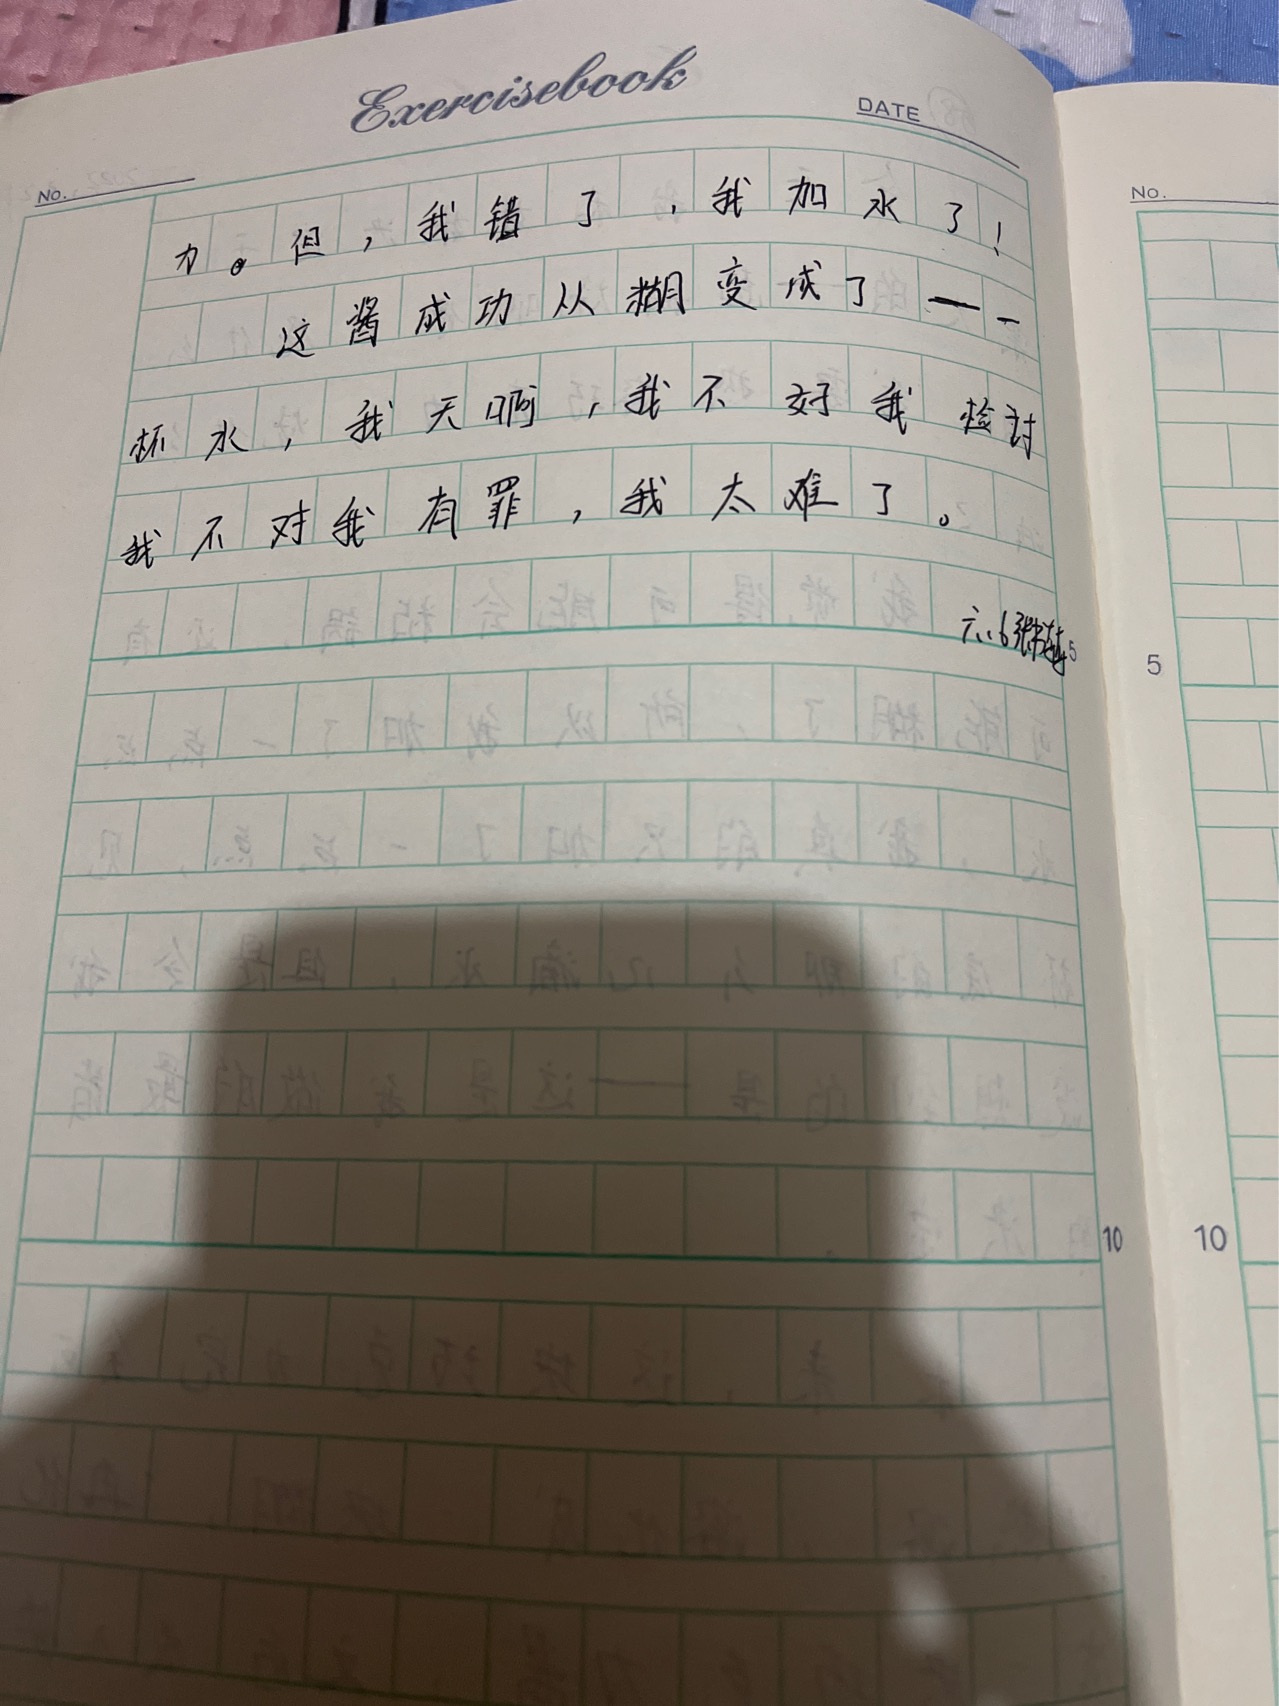 Exercisebook
DATE
No.
力。但，我错了，我加水了！
这酱成功从糊变成了一一
杯水，我天啊，我不好我检讨
我不对我有罪，我太难了。
六.6张
5
10
No.
5
10